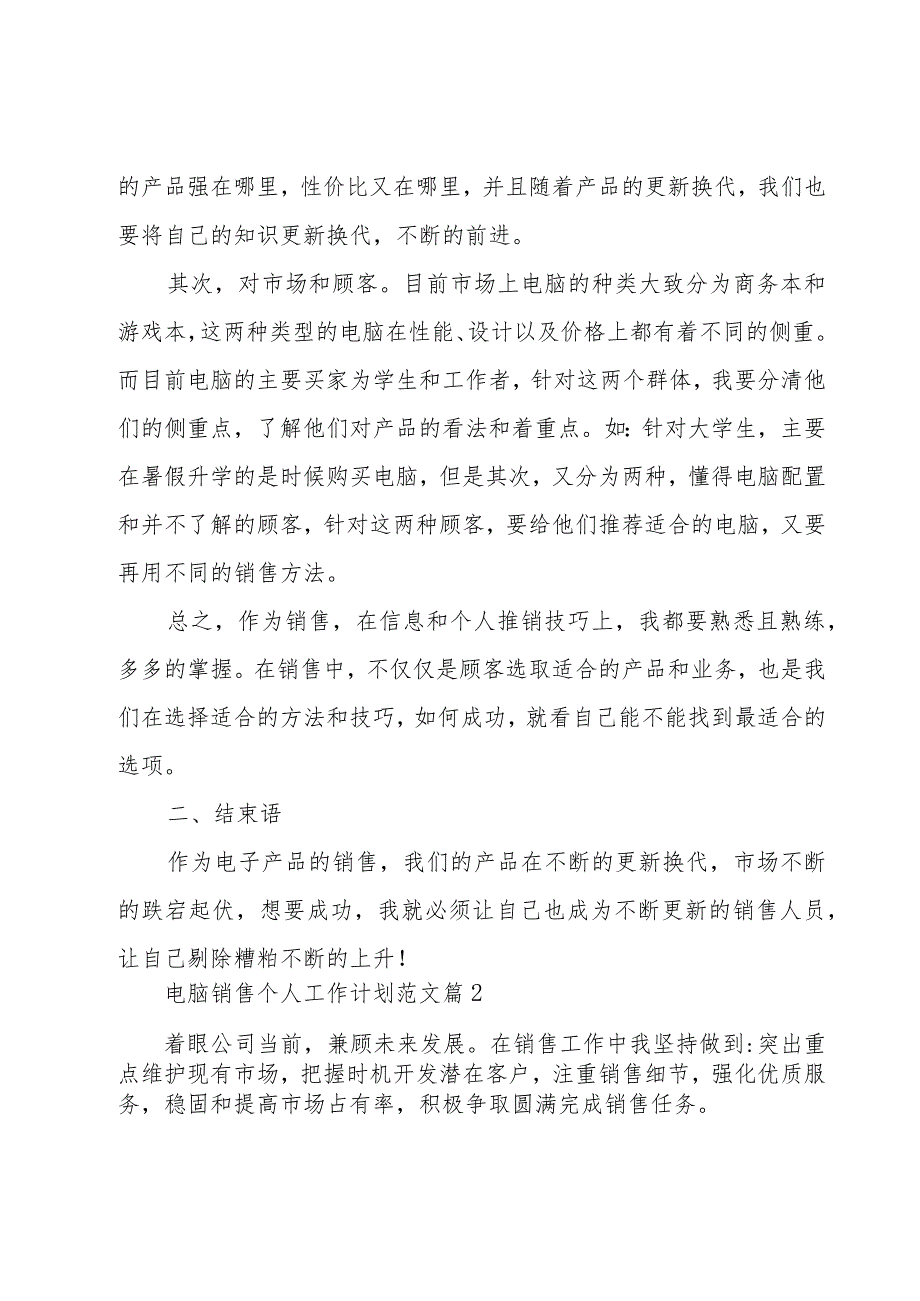 的产品强在哪里，性价比又在哪里，并且随着产品的更新换代，我们也
要将自己的知识更新换代，不断的前进。
其次，对市场和顾客。目前市场上电脑的种类大致分为商务本和
游戏本，这两种类型的电脑在性能、设计以及价格上都有着不同的侧重。
而目前电脑的主要买家为学生和工作者，针对这两个群体，我要分清他
们的侧重点，了解他们对产品的看法和着重点。如：针对大学生，主要
在暑假升学的是时候购买电脑，但是其次，又分为两种，懂得电脑配置
和并不了解的顾客，针对这两种顾客，要给他们推荐适合的电脑，又要
再用不同的销售方法。
总之，作为销售，在信息和个人推销技巧上，我都要熟悉且熟练，
多多的掌握。在销售中，不仅仅是顾客选取适合的产品和业务，也是我
们在选择适合的方法和技巧，如何成功，就看自己能不能找到最适合的
选项。
二、结束语
作为电子产品的销售，我们的产品在不断的更新换代，市场不断
的跌宕起伏，想要成功，我就必须让自己也成为不断更新的销售人员，
让自己剔除糟粕不断的上升！
电脑销售个人工作计划范文篇2
着眼公司当前，兼顾未来发展。在销售工作中我坚持做到：突出重
点维护现有市场，把握时机开发潜在客户，注重销售细节，强化优质服
务，稳固和提高市场占有率，积极争取圆满完成销售任务。